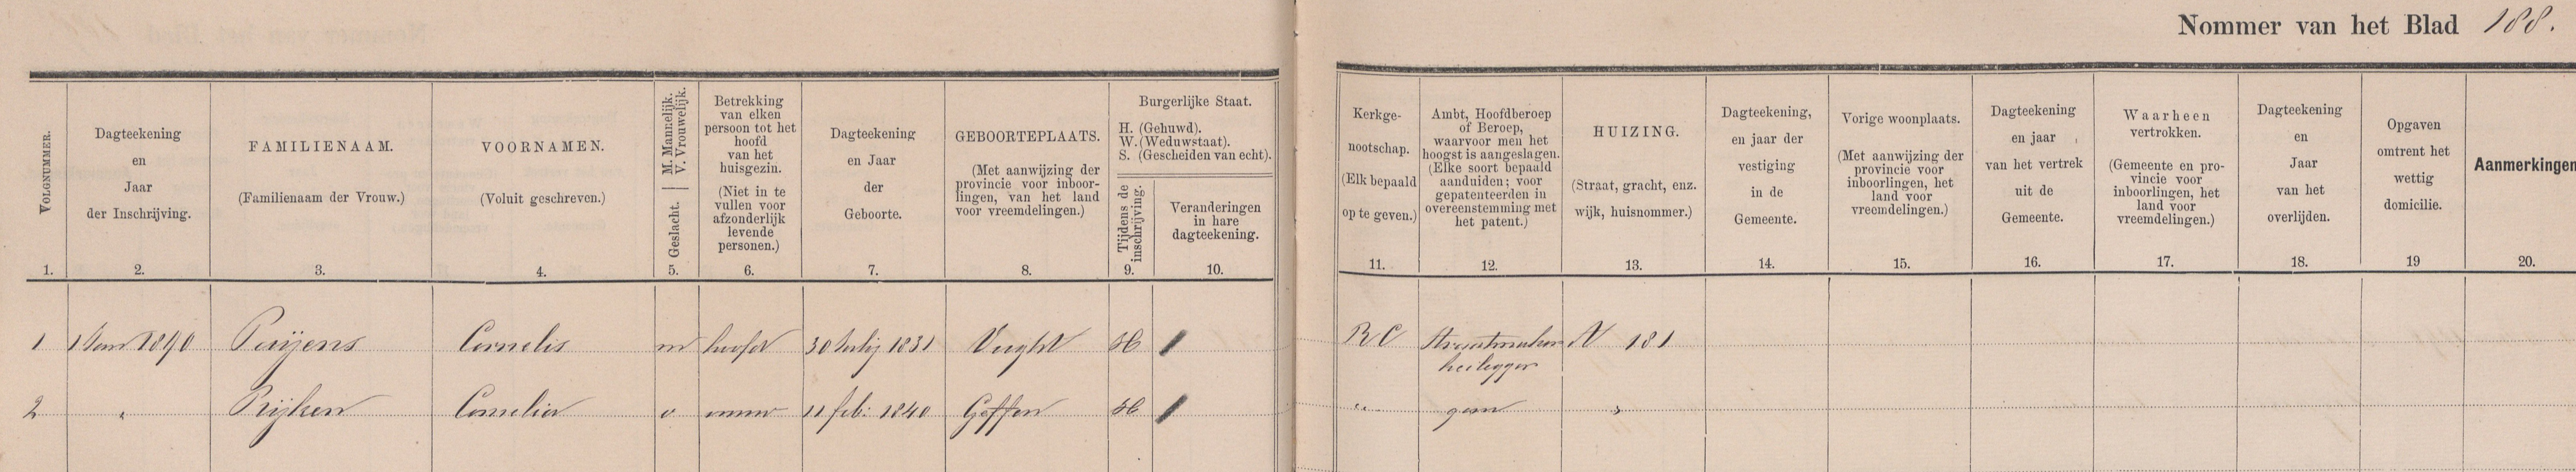 Nommer van het Blad 188.
VOLGNUMMER.
1.
Dagteekening
en
Jaar
der Inschrijving.
2.
FAMILIENAAM.
(Familienaam der Vrouw.)
3.
VOORNAMEN.
(Voluit geschreven.)
4.
Geslacht. M. Mannelijk.
V. Vrouwelijk.
5.
Betrekking
van elken
persoon tot het
hoofd
van het
huisgezin.
(Niet in te
vullen voor
afzonderlijk
levende
personen.)
6.
Dagteekening
en Jaar
der
Geboorte.
7.
GEBOORTEPLAATS.
(Met aanwijzing der
provincie voor inboor-
lingen, van het land
voor vreemdelingen.)
8.
Burgerlijke Staat.
H. (Gehuwd).
W. (Weduwstaat).
S. (Gescheiden van echt).
Tijdens de
inschrijving.
9.
Veranderingen
in hare
dagteekening.
10.
Kerkge-
nootschap.
(Elk bepaald
op te geven.)
11.
Ambt, Hoofdberoep
of Beroep,
waarvoor men het
hoogst is aangeslagen.
(Elke soort bepaald
aanduiden; voor
gepatenteerden in
overeenstemming met
het patent.)
12.
HUIZING.
(Straat, gracht, enz.
wijk, huisnommer.)
13.
Dagteekening,
en jaar der
vestiging
in de
Gemeente.
14.
Vorige woonplaats.
(Met aanwijzing der
provincie voor
inboorlingen, het
land voor
vreemdelingen.)
15.
Dagteekening
en jaar
van het vertrek
uit de
Gemeente.
16.
Waarheen
vertrokken.
(Gemeente en pro-
vincie voor
inboorlingen, het
land voor
vreemdelingen.)
17.
Dagteekening
en
Jaar
van het
overlijden.
18.
Opgaven
omtrent het
wettig
domicilie.
19
Aanmerkingen
20.
1 1 Jan 1890 Puijens Cornelis m hoofd 30 Julij 1831 Vught H RC Straatmaker N 181
keilegger
2 " Rijken Cornelia v vrouw 11 feb: 1840 Geffen H " geen "